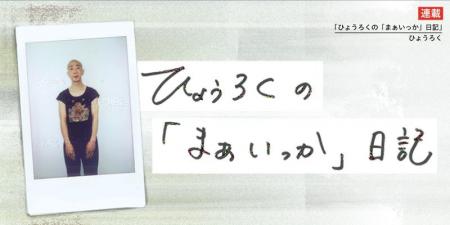 連載
「ひょうろくの「まぁいっか」日記」
ひょうろく
ひょうろくの
「まぁいっか」日記